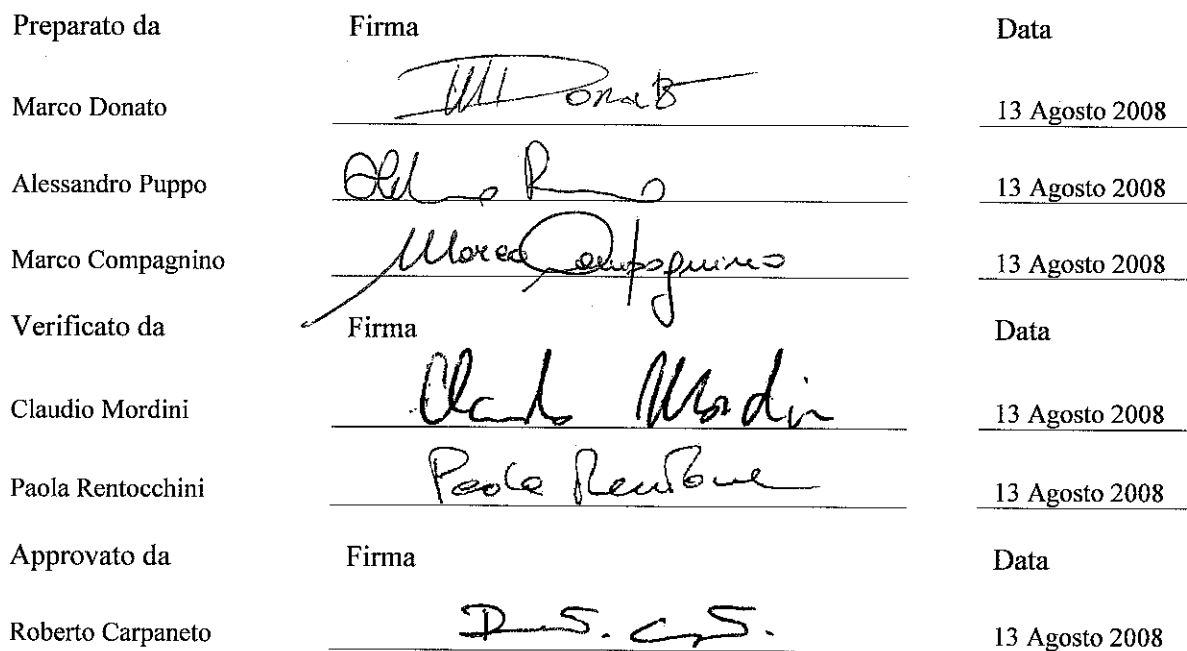 Preparato da Firma Data
Marco Donato M Donato 13 Agosto 2008
Alessandro Puppo 13 Agosto 2008
Marco Compagnino Marco Compagnino 13 Agosto 2008
Verificato da Firma Data
Claudio Mordini Claudio Mordini 13 Agosto 2008
Paola Rentocchini Paola 13 Agosto 2008
Approvato da Firma Data
Roberto Carpaneto 13 Agosto 2008